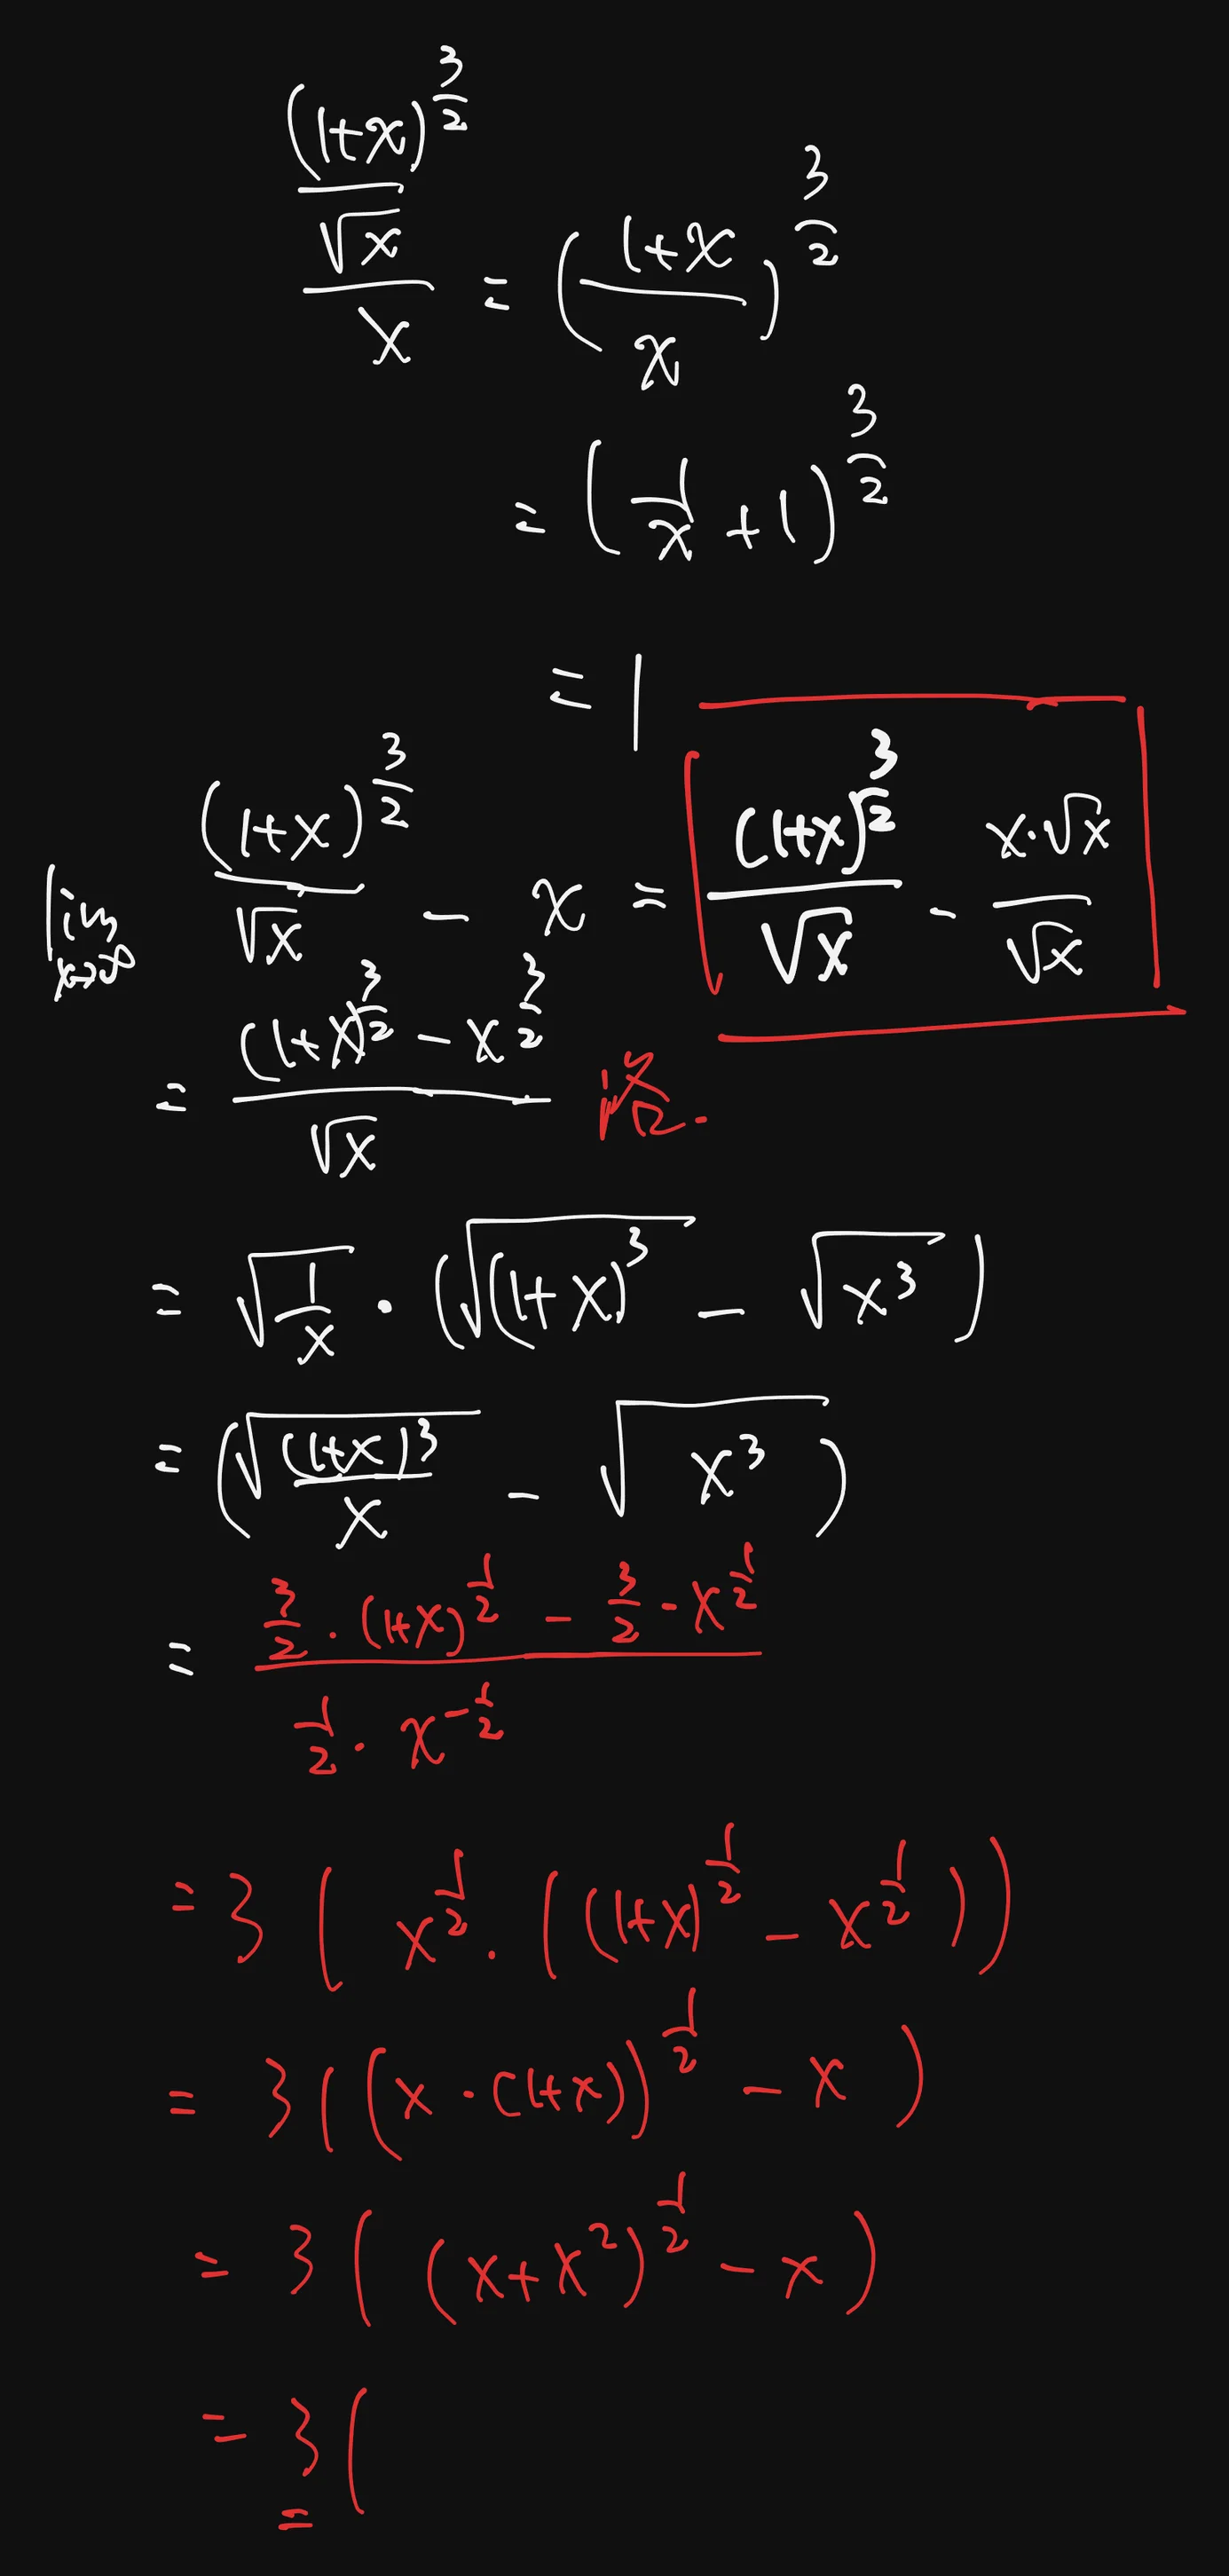 ((1+x)^(3/2)/√x)/x = ((1+x)/x)^(3/2)
= (1/x + 1)^(3/2)
= 1
lim x→∞ (1+x)^(3/2)/√x - x = (1+x)^(3/2)/√x - x·√x/√x
= ((1+x)^(3/2) - x^(3/2))/√x 洛.
= √(1/x) · (√((1+x)^3) - √(x^3))
= (√((1+x)^3/x) - √(x^3))
= (3/2 · (1+x)^(1/2) - 3/2 - x^(1/2))/(1/2 · x^(-1/2))
= 3 (x^(1/2) · ((1+x)^(1/2) - x^(1/2)))
= 3 ((x · (1+x))^(1/2) - x)
= 3 ((x+x^2)^(1/2) - x)
= 3 (
=